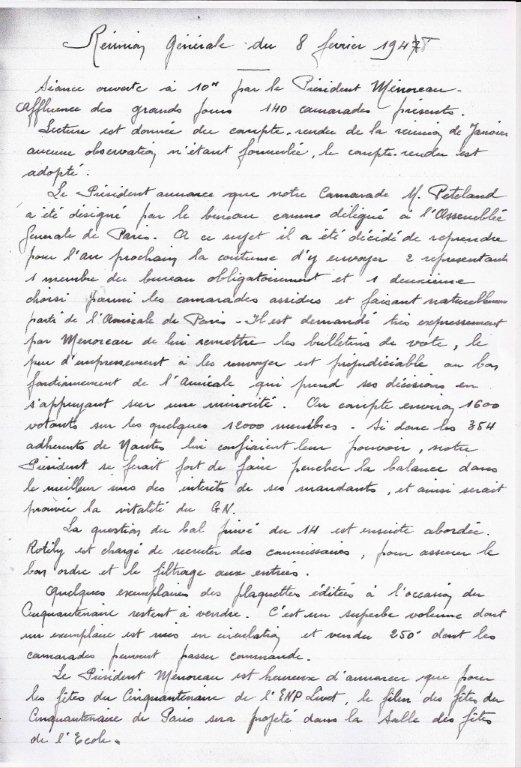 Réunion Générale du 8 février 1948
Séance ouverte à 10H par le Président Ménoreau.
Affluence des grands jours 140 camarades présents.
Lecture est donnée du compte-rendu de la réunion de Janvier
aucune observation n'étant formulée, le compte-rendu est
adopté.
Le Président annonce que notre Camarade M. Peteland
a été désigné par le bureau comme délégué à l'Assemblée
Générale de Paris. A ce sujet il a été décidé de reprendre
pour l'an prochain la coutume d'y envoyer 2 représentants
1 membre du bureau obligatoirement et 1 deuxième
choisi parmi les camarades assidus et faisant naturellement
partie de l'Amicale de Paris. Il est demandé très expressément
par Ménoreau de lui remettre les bulletins de vote, le
peu d'empressement à les renvoyer est préjudiciable au bon
fonctionnement de l'Amicale qui prend ses décisions en
s'appuyant sur une minorité. On compte environ 1600
votants sur les quelques 12000 membres. Si donc les 354
adhérents de Nantes lui confiaient leur pouvoir, notre
Président se ferait fort de faire pencher la balance dans
le meilleur sens des intérêts de ses mandants, et ainsi serait
prouvée la vitalité du GN.
La question du bal privé du 14 est ensuite abordée.
Rotihy est chargé de recruter des commissaires, pour assurer le
bon ordre et le filtrage aux entrées.
Quelques exemplaires des plaquettes éditées à l'occasion du
Cinquantenaire restent à vendre. C'est un superbe volume dont
un exemplaire est mis en circulation et vendu 250f dont les
camarades peuvent passer commande.
Le Président Ménoreau est heureux d'annoncer que pour
les fêtes du Cinquantenaire de l'ENP Livet, le film des fêtes du
Cinquantenaire de Paris sera projeté dans la Salle des fêtes
de l'Ecole.